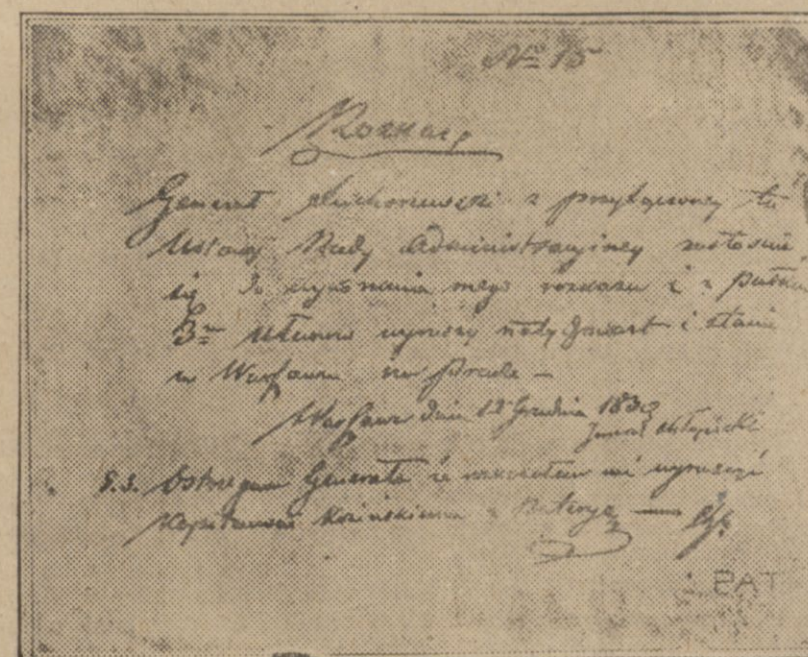 No 15
Rozkaz
Generał Suchorzewski z przyłączoney tu
Ustawy Rady Administracyiney zastosuie
się do wykonania mego rozkazu i z pułkiem
3m Ułanów wyruszy natychmiast i stanie
w Warszawie na Pradze —
Warszawa dnia 12 Grudnia 1830
Generał Chłopicki
P.S. Ostrzegam Generała że kazałem mu wyruszyć
Kapitanowi z Bateryą —
PAT